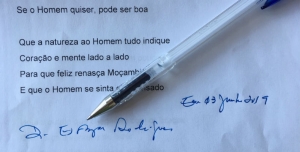 Se o Homem quiser, pode ser boa
Que a natureza ao Homem tudo indique
Coração e mente lado a lado
Para que feliz renasça Moçambi
E que o Homem se sinta
Em 03 Junho 2019
Rodrigues